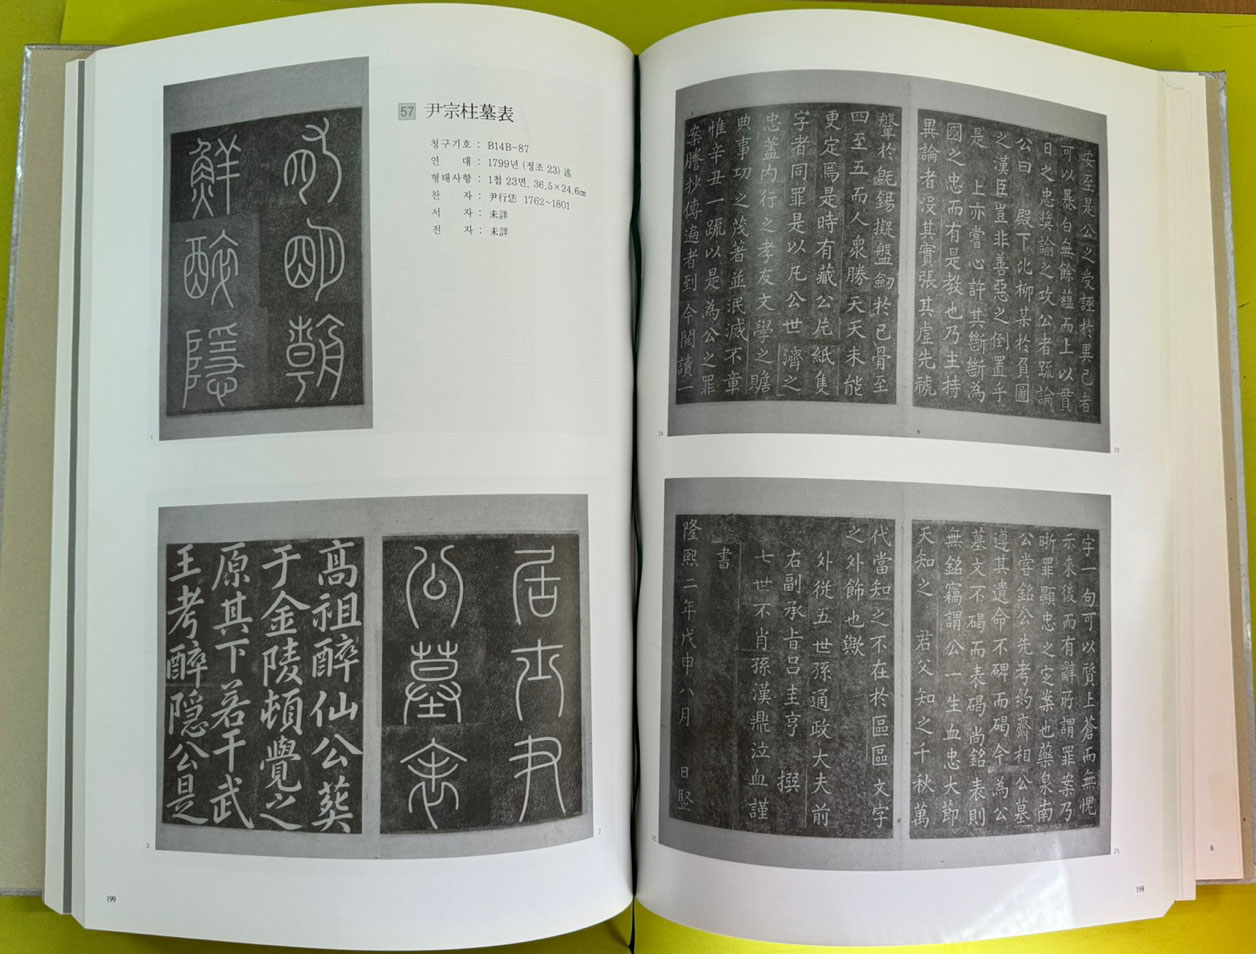 安至是公之受誣於異己者
可以暴白無餘蘊而上以貫
日之忠奬諭之攻公者疏論
公曰 殿下比柳某於負圖
之漢臣豈非善惡之倒置乎
是 上亦當心許其斷斷為
國之忠而有是教也乃主持
異論者沒其實張其虛先
23
於毓錫擬盤劒於已骨至
四至五而人衆勝天天未能
更定焉是時有藏公片紙隻
字者同罪是以凡公世濟之
忠蓋內行之孝友文學之贍
典事功之茂著並泯滅不章
惟辛丑一疏以是為公之罪
案謄抄傳遍者到今閱讀一
24
字一句可以質上蒼而無愧
示來後而有辭所謂罪案乃
昕罪顯忠之定案也藥泉南
公嘗銘公先考約齋相公墓
遵其遺命不碑而碣今為公
墓文不碣而表碣尚銘表則
無銘竊謂公一生血忠大節
天知之 君父知之千秋萬
25
代當知之不在於區區文字
之外飾也歟
外從五世孫通政大夫前
右副承旨呂圭亨 撰
七世不肖孫漢鼎泣血謹
書
隆熙二年戊申八月 日竪
198
6
57 尹宗柱墓表
청구기호 : B14B-87
연 대 : 1799년 (정조 23) 遙
형태사항 : 1첩 23면, 36.5×24.6cm
찬 자 : 尹行恁 1762~1801
서 자 : 未詳
전 자 : 未詳
有明朝
鮮醉隱
1
居士尹
公墓表
2
高祖醉仙公葬
于金陵頓覺之
原其下若干武
王考醉隱公是
3
199